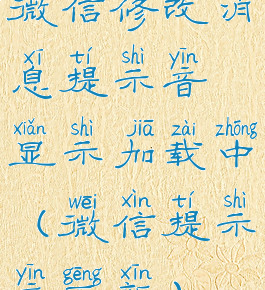 微信修改消
xī tí shì yīn
息提示音
xiǎn shì jiā zài zhōng
显示加载中
wēi xìn tí shì
（微信提示
yīn gēng xīn